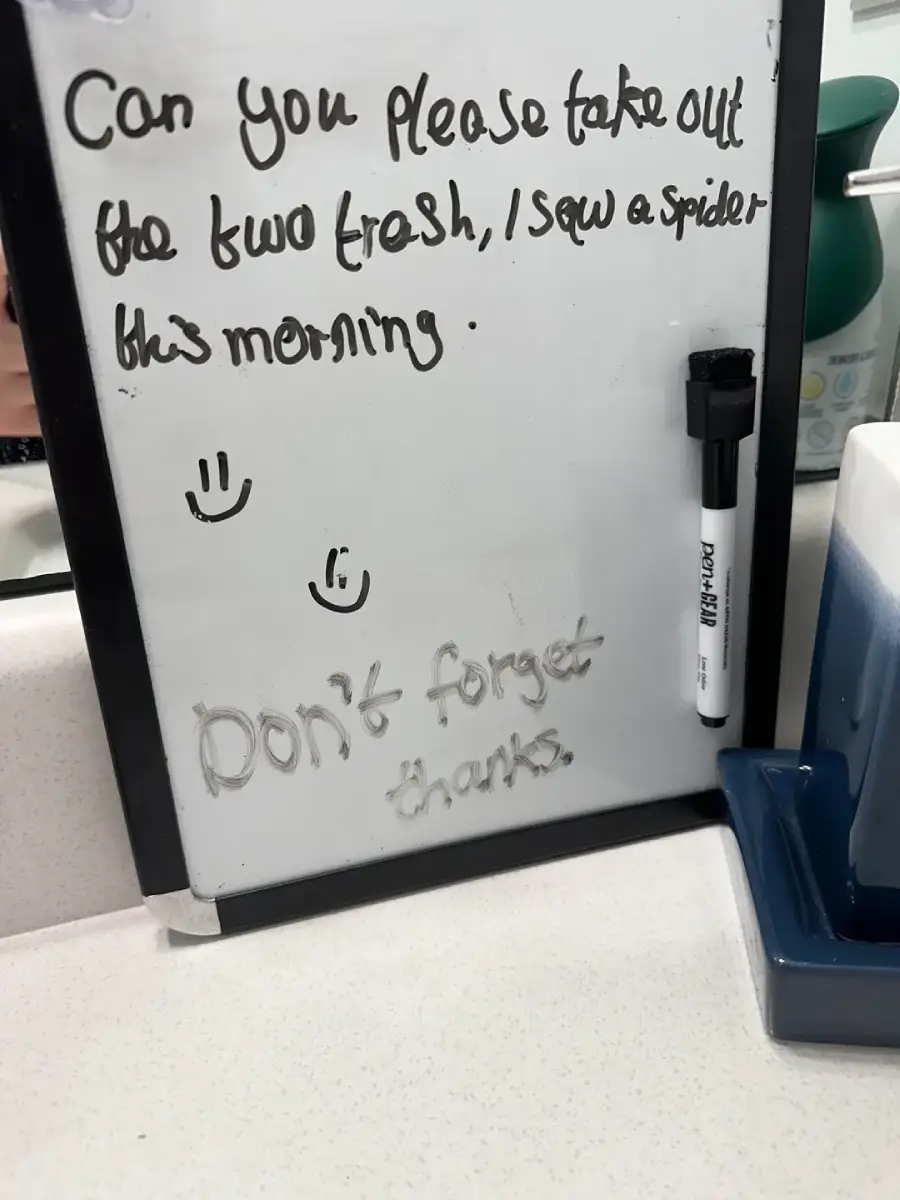 Can you please take out
the two trash, I saw a spider
this morning.
Don't forget
thanks.
pen+GEAR
Low Odor